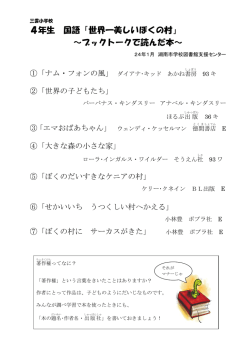 三雲小学校
4年生 国語「世界一美しいぼくの村」
～ブックトークで読んだ本～
24年1月 湖南市学校図書館支援センター
①「ナム・フォンの風」 ダイアナ・キッド あかね書房 93キ
②「世界の子どもたち」
バーナバス・キンダスリー アナベル・キンダスリー
ほるぷ出版 36キ
③「エマおばあちゃん」 ウェンディ・ケッセルマン 徳間書店 E
④「大きな森の小さな家」
ローラ・インガルス・ワイルダー そうえん社 93ワ
⑤「ぼくのだいすきなケニアの村」
ケリー・クネイン BL出版 E
⑥「せかいいち うつくしい村へかえる」
小林豊 ポプラ社 E
⑦「ぼくの村に サーカスがきた」 小林豊 ポプラ社 E
著作権ってなに?
「著作権」という言葉をきいたことはありますか?
作者にとって作品は、子どものようにだいじなものです。
みんなが調べ学習で本を使ったときにも、
「本の題名・作者名・出版社」を書いておきましょう!
それが
マナーじゃ。